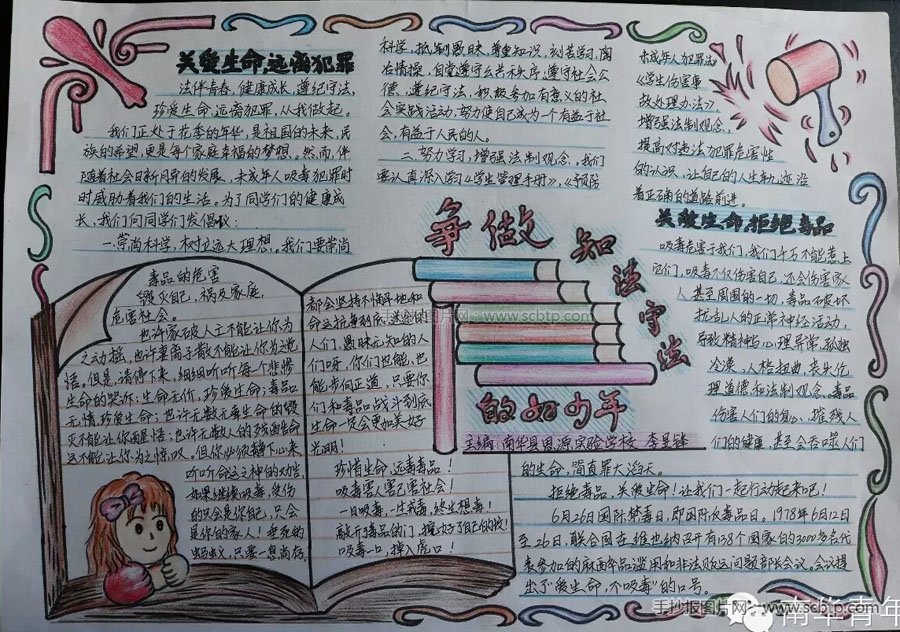 关爱生命,远离犯罪
法伴青春,健康成长,遵纪守法,
珍爱生命,远离犯罪,从我做起。
我们正处于花季的年华,是祖国的未来,民
族的希望,更是每个家庭幸福的梦想。然而,伴
随着社会日新月异的发展,未成年人吸毒犯罪时
时威胁着我们的生活。为了同学们的健康成
长,我们向同学们发倡议:
一.崇尚科学,树立远大理想。我们要崇尚
科学,抵制愚昧,尊重知识,刻苦学习,陶
冶情操,自觉遵守公共秩序,遵守社会公
德,遵纪守法,积极参加有意义的社
会实践活动,努力使自己成为一个有益于社
会,有益于人民的人。
二.努力学习,增强法制观念,我们
要认真深入学习《学生管理手册》,《预防
未成年人犯罪法》
《学生伤害事
故处理办法》,
增强法制观念,
提高对违法犯罪危害性
的认识,让自己的人生轨迹沿
着正确的道路前进。
争做
知法守法
的好少年
主编:南华县思源实验学校
关爱生命,拒绝毒品
吸毒危害于我们,我们千万不能惹上
它们,吸毒不仅伤害自己,还会伤害家
人,甚至周围的一切,毒品不要坏
扰乱人的正常神经活动,
导致精神与心理异常,孤独
冷漠,人格扭曲,丧失伦
理道德和法制观念。毒品
伤害人们的身心,摧残人
们的健康,甚至会吞噬人们
的生命,简直罪大滔天。
拒绝毒品,关爱生命!让我们一起行动起来吧!
6月26日国际禁毒日,即国际反毒品日。1978年6月12日
至26日,联合国在维也纳召开有138个国家的3000多名代
表参加的麻醉品滥用和非法贩运问题部长会议。会议提
出了“爱生命,不吸毒”的口号。
毒品的危害
毁灭自己,祸及家庭,
危害社会。
也许家破人亡不能让你为
之动摇,也许妻离子散不能让你为之悔
悟。但是,请停下来,细细听听每个悲惨
生命的哭诉:生命无价,珍爱生命;毒品
无情,珍爱生命;也许无数无辜生命的毁
灭不能让你而悔悟;也许无数人的残留生命
还不能让你为之惊叹。但你必须静下心来
听听命运之神的劝告,
如果继续吸毒,受伤
的只会是你自己,只会
是你的家人!垂死的
蚂蚁,只要一息尚存,
都会坚持不懈寻地和
命运抗争到底,迷途的
人们,愚昧无知的人
们呀,你们也能,也
能步向正道,只要你
们和毒品战斗到底,
生命一定会更加美好
光明!
珍惜生命,远离毒品!
吸毒害人害己害社会!
一日吸毒,一生戒毒,终生想毒!
敲开毒品的门,掘好了自己的坟!
吸毒一口,掉入虎口!
手抄报图片网:www.scbtp.com
手抄报图片网:www.scbtp.com
南华青年